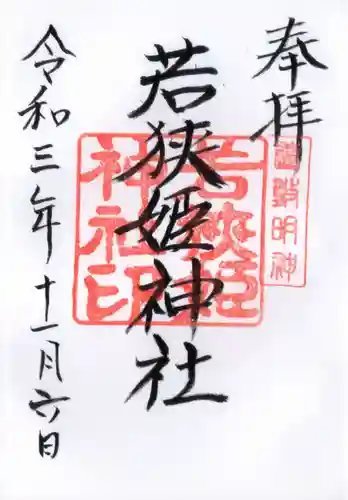 奉拝
若狭姫神社
令和三年十一月六日
若狭姫
神社印
明神